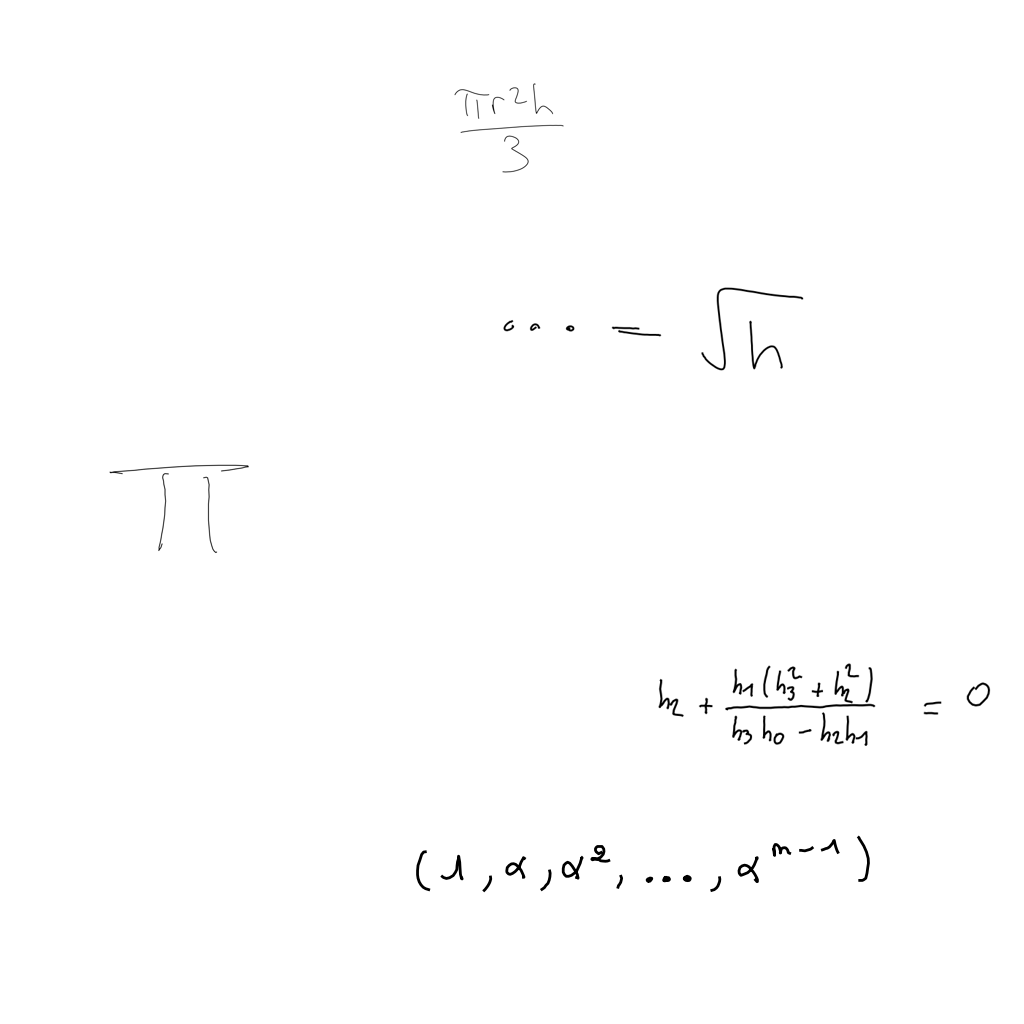 \frac{\pi r^2 h}{3}
\dots = \sqrt{h}
\prod
h_2 + \frac{h_1 (h_3^2 + h_2^2)}{h_3 h_0 - h_2 h_1} = 0
(1, \alpha, \alpha^2, \dots, \alpha^{n-1})